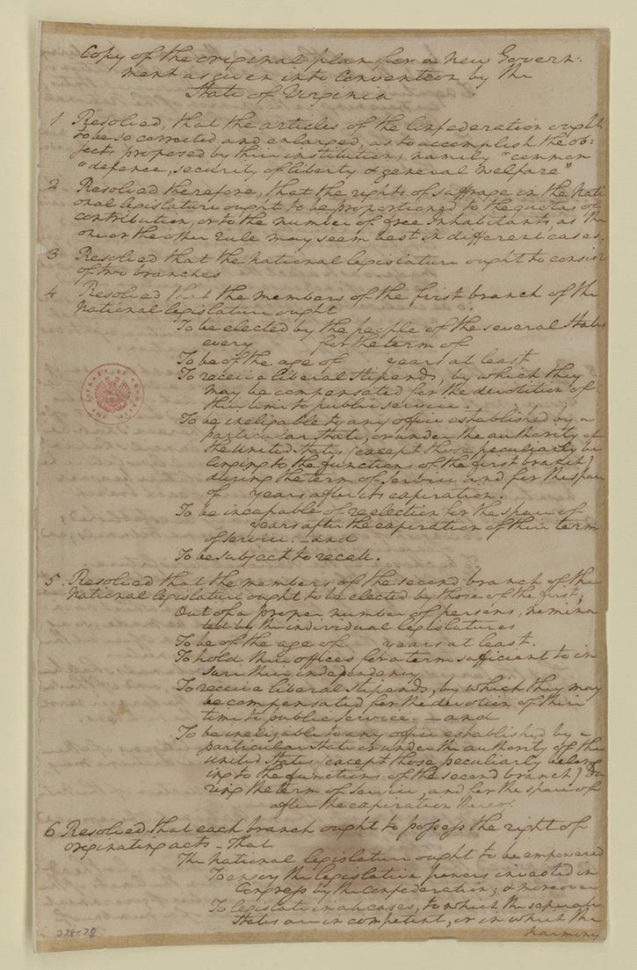 Copy of the original plan for a new Govern-
ment as given into Convention by the
State of Virginia
1 Resolved, that the articles of the Confederation ought
to be so corrected and enlarged, as to accomplish the ob-
jects proposed by their institution, namely "common
"defence, security of liberty & general welfare"
2 Resolved therefore, that the rights of suffrage in the Nati
onal legislature ought to be proportioned to the quotas of
contribution, or to the number of free inhabitants, as the
one or the other rule may seem best in different cases.
3 Resolved that the national legislature ought to consist
of two branches
4 Resolved that the members of the first branch of the
National legislature ought
To be elected by the people of the several States
every for the term of
To be of the age of years at least
To receive liberal stipends, by which they
may be compensated for the devotition of
their time to public service.
To be ineligable to any office established by a
particular State, or under the authority of
the United States (except those peculiarly be
longing to the functions of the first branch)
during the term of service and for the space
of years after its expiration.
To be incapable of reelection for the space of
years after the expiration of their term
of service. and
To be subject to recall.
5. Resolved that the members of the second branch of the
National legislature ought to be elected by those of the first,
Out of a proper number of persons, nomina
ted by the individual legislatures
To be of the age of years at least.
To hold their offices for a term sufficient to in
sure their independency
To receive liberal stipends, by which they may
be compensated for the devotion of their
time to public service. — and
To be ineligable to any office established by a
particular State or under the authority of the
United States (except those peculiarly belong
ing to the functions of the second branch) du
ring the term of service, and for the space of
after the expiration thereof
6 Resolved that each branch ought to possess the right of
originating acts - that
The national legislature ought to be empowered
To enjoy the legislative powers invested in
Congress by the Confederation; & moreover
To legislate in all cases, to which the separate
States are incompetent, or in which the
harmony